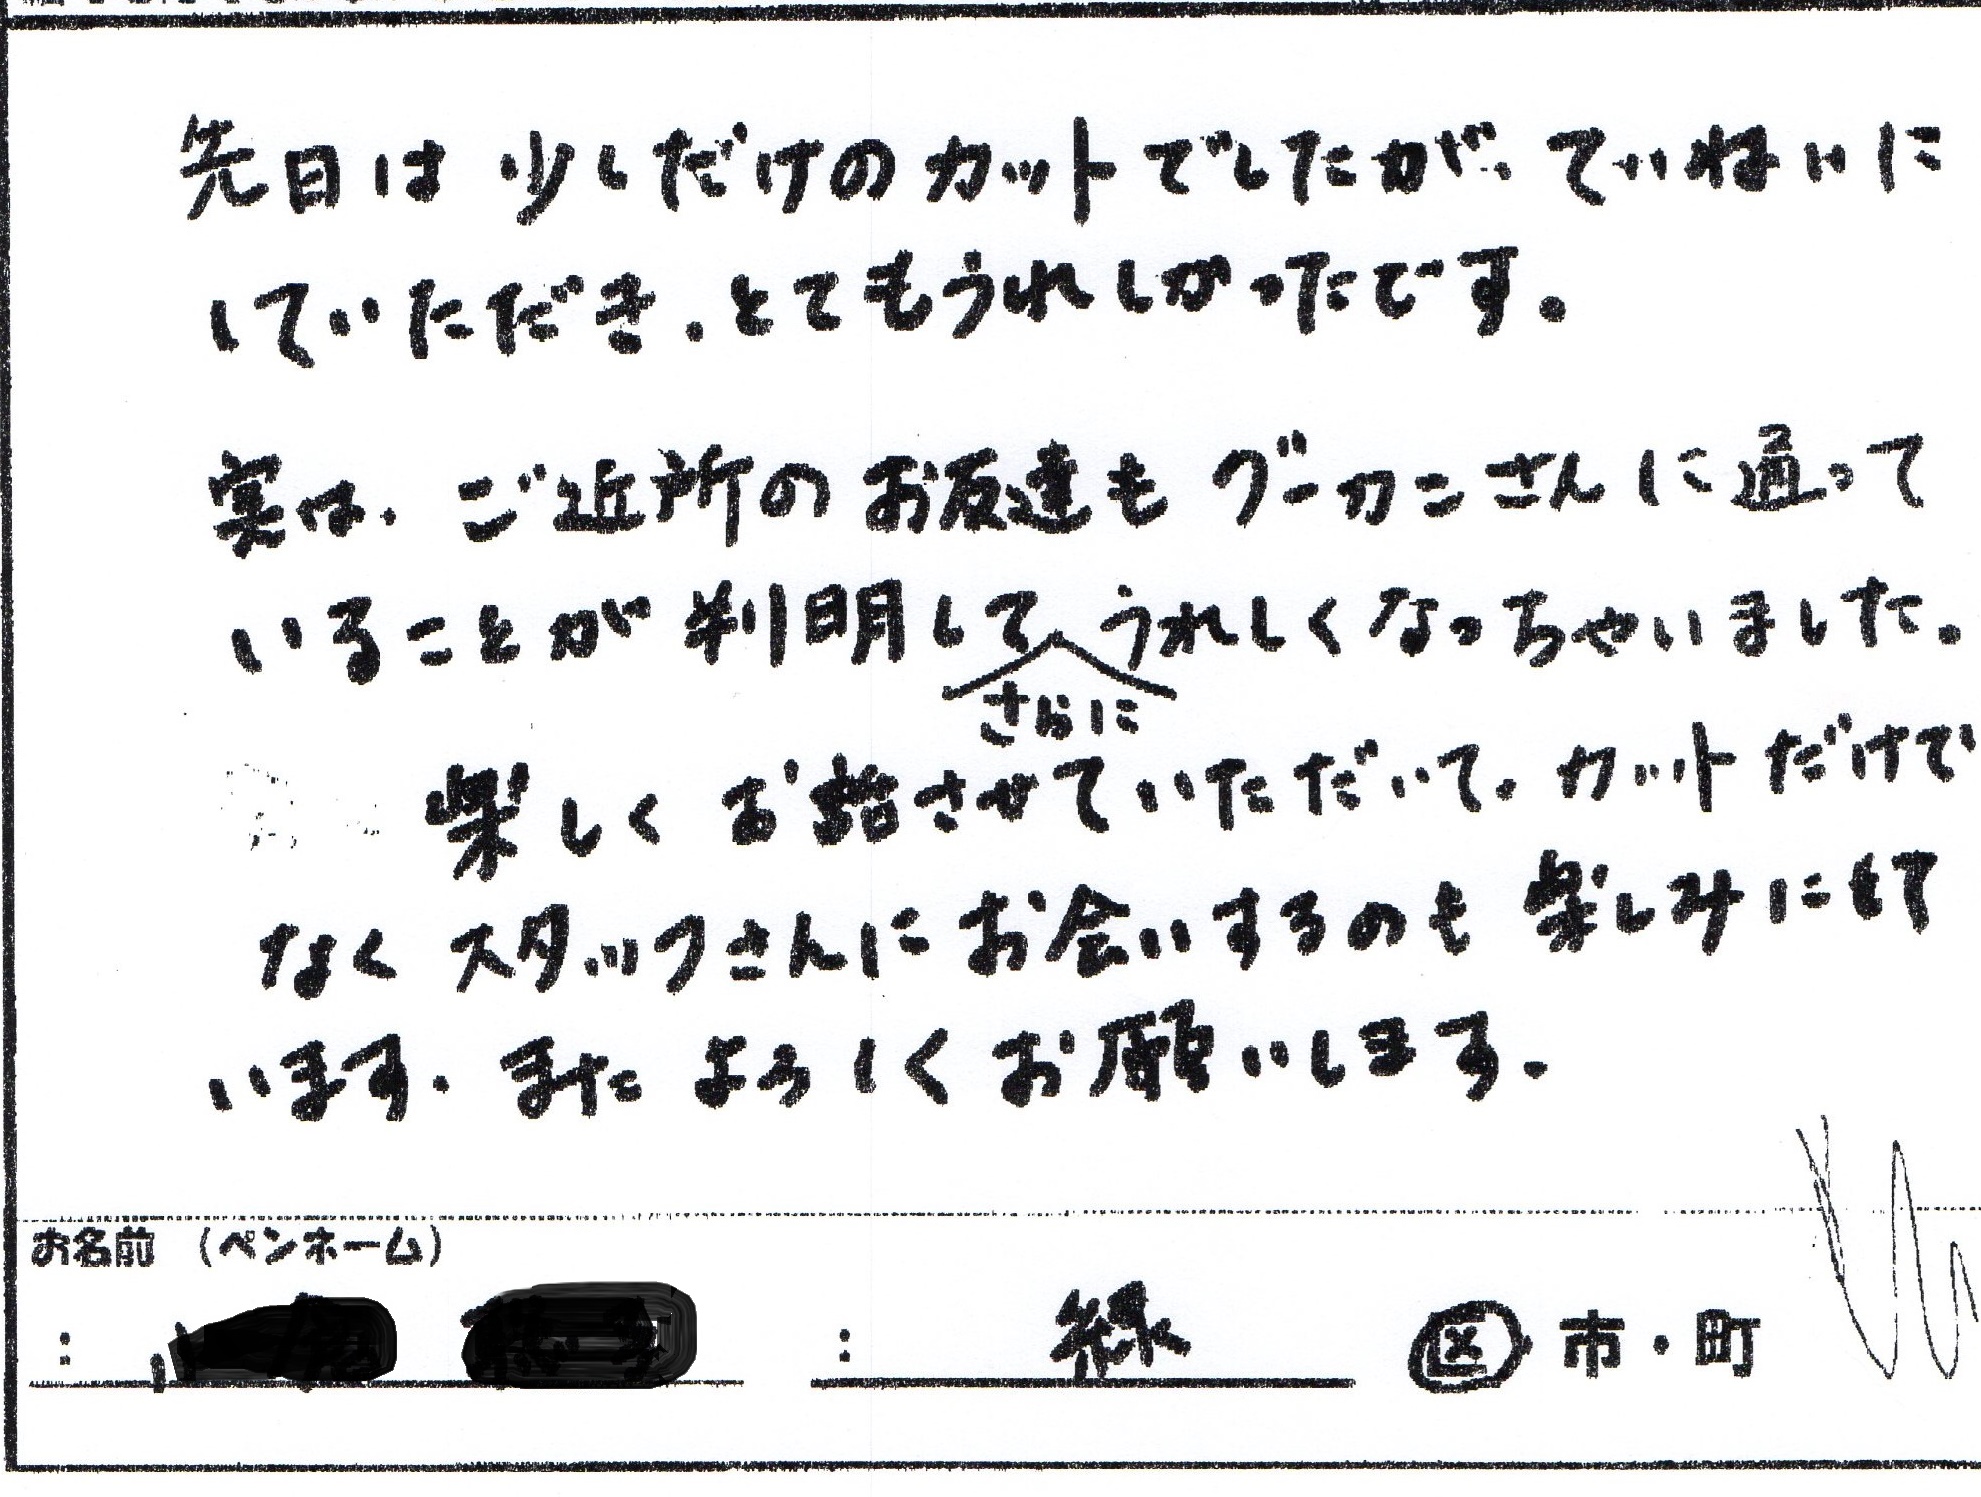 先日は少しだけのカットでしたが、ていねいに
していただき、とてもうれしかったです。
実は、ご近所のお友達もグーカニさんに通って
いることが判明してうれしくなっちゃいました。
さらに
楽しくお話させていただいて、カットだけで
なくスタッフさんにお会いするのも楽しみにして
います。またよろしくお願いします。
お名前（ペンホーム）
：
： 緑 区・市・町